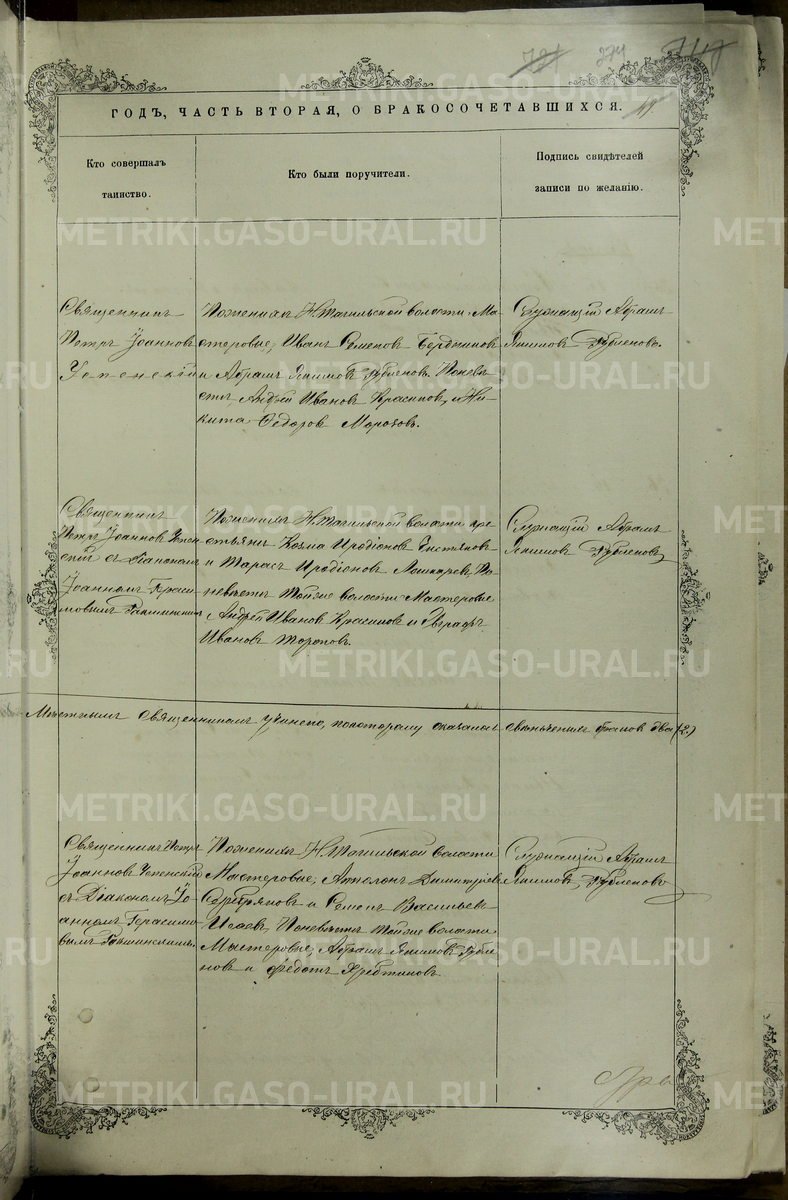 274
ГОДЪ, ЧАСТЬ ВТОРАЯ, О БРАКОСОЧЕТАВШИХСЯ.
49.
Кто совершалъ
таинство.
Кто были поручители.
Подпись свидѣтелей
записи по желанію.
Священникъ
Петръ Іоанновъ
Успенскій
По женихѣ Н.Тагильской волости Ма
стеровые, Иванъ Семеновъ
и Абрамъ Якимовъ Рубленовъ. По невѣ
стѣ, Андрей Ивановъ Красиковъ, и Ни
кита Ѳедоровъ Морозовъ.
Служащій Абрамъ
Якимовъ Рубленовъ.
Священникъ
Петръ Іоанновъ Успен
скій съ Діакономъ
Іоанномъ Гераси
мовымъ
По женихѣ Н.Тагильской волости кре
стьяне Козма Иродіоновъ
и Тарасъ Иродіоновъ По
невѣстѣ той же волости Мастеровые
Андрей Ивановъ Красиковъ и Евграфъ
Ивановъ Тороповъ.
Служащій Абрамъ
Якимовъ Рубленовъ
Мѣстнымъ Священникомъ учинено, по которому оказалось свѣнчанныхъ браковъ два (2.)
Священникъ Петръ
Іоанновъ Успенскій
съ Діакономъ Іо
анномъ Герасимо
вымъ
По женихѣ Н.Тагильской волости
Мастеровые, Аполонъ Димитріевъ
Серебряковъ и Семенъ Васильевъ
Исаевъ, По невѣстѣ той же волости
Мастеровые, Абрамъ Якимовъ Рубле
новъ и Федотъ
Служащій Абрамъ
Якимовъ Рубленовъ
METRIKI.GASO-URAL.RU